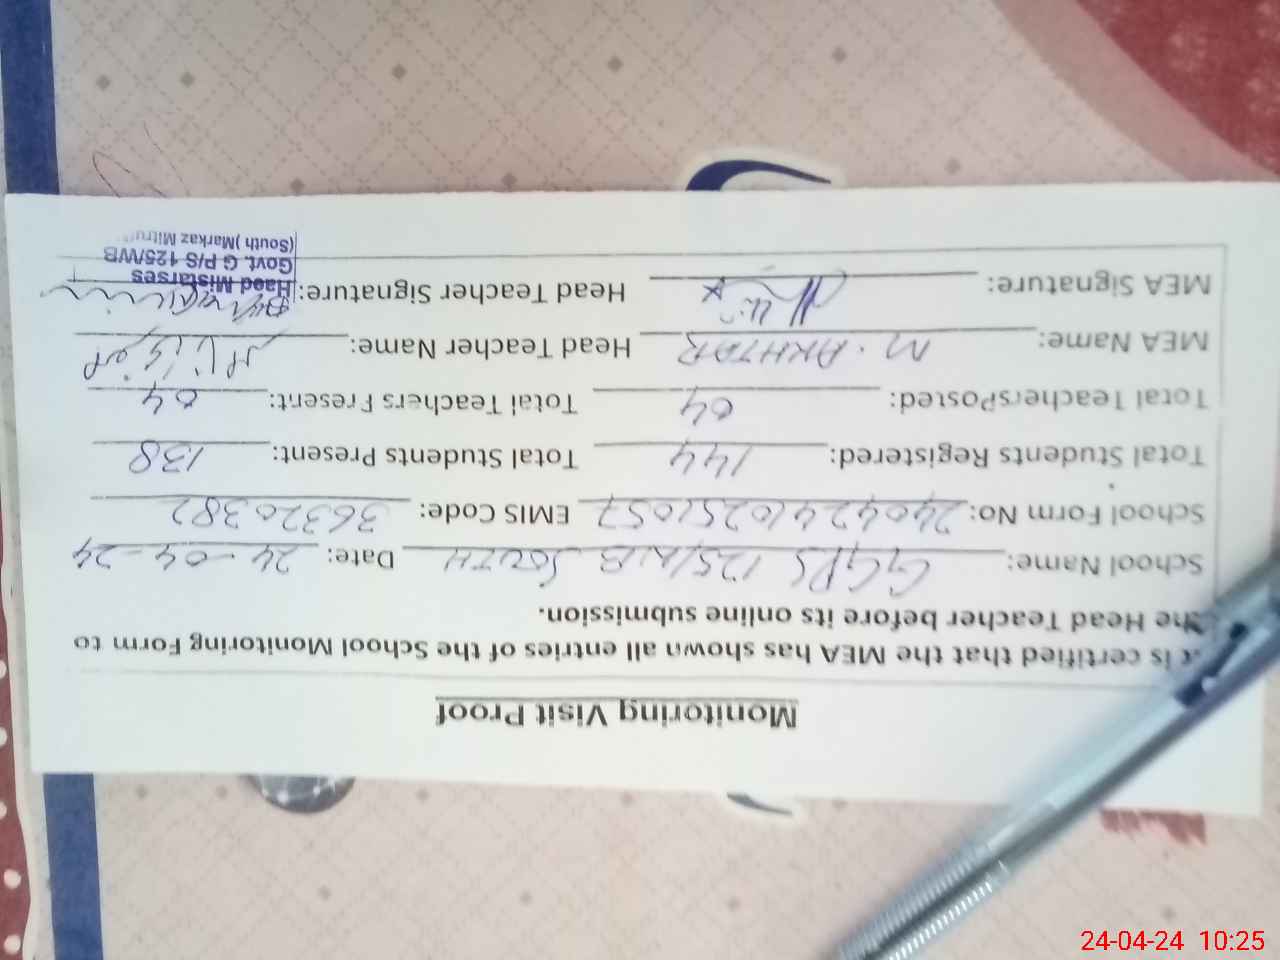 Monitoring Visit Proof
It is certified that the MEA has shown all entries of the School Monitoring Form to
the Head Teacher before its online submission.
School Name: GGPS 125/WB SOUTH Date: 24-04-24
School Form No: 24042410251057 EMIS Code: 36320382
Total Students Registered: 144 Total Students Present: 138
Total TeachersPosted: 04 Total Teachers Present: 04
MEA Name: M. AKHTAR Head Teacher Name:
MEA Signature: Head Teacher Signature:
Haed Mistarses
Govt. G P/S 125/WB
(South) Markaz
24-04-24 10:25